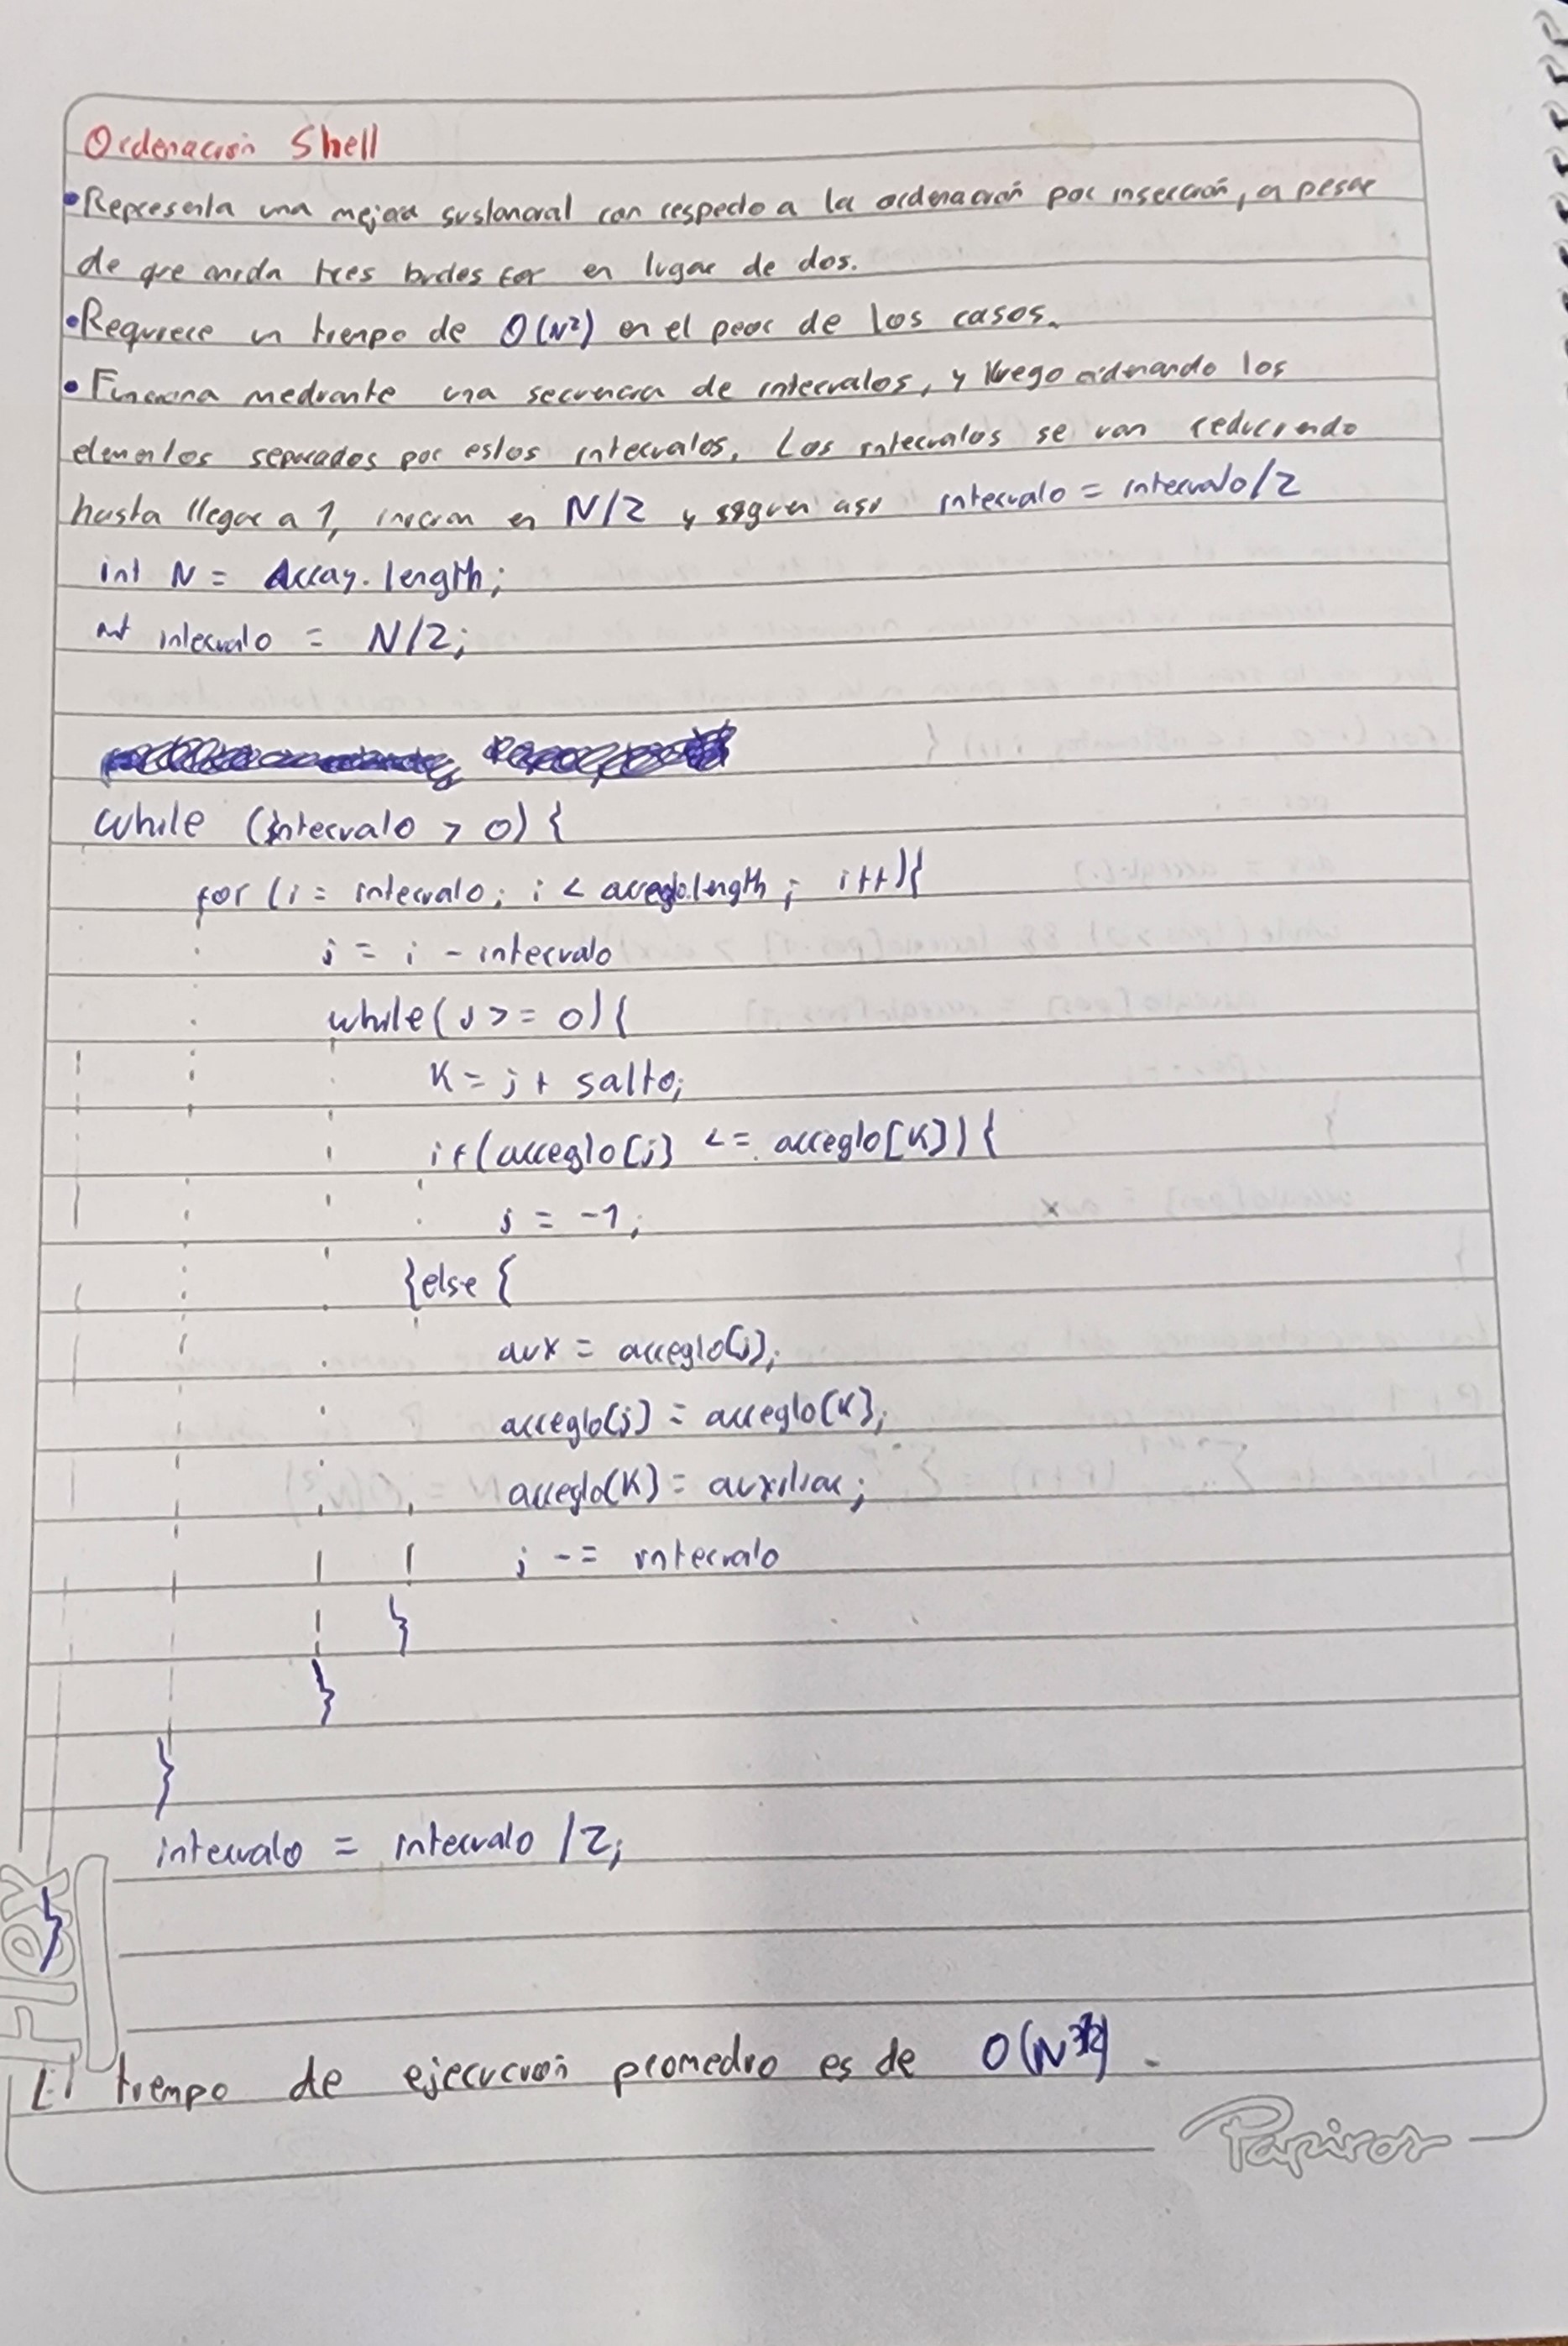 Ordenación Shell
• Representa una mejora sustancial con respecto a la ordenación por inserción, a pesar
de que anida tres bucles for en lugar de dos.
• Requiere un tiempo de O(N²) en el peor de los casos.
• Funciona mediante una secuencia de intervalos, y luego ordenando los
elementos separados por estos intervalos. Los intervalos se van reduciendo
hasta llegar a 1, inician en N/2 y siguen así intervalo = intervalo/2
int N = Array.length;
int intervalo = N/2;
while (intervalo > 0) {
for (i = intervalo; i < arreglo.length; i++){
j = i - intervalo
while(j >= 0){
K = j + salto;
if(arreglo[j] <= arreglo[K]){
j = -1;
}else {
aux = arreglo[j];
arreglo[j] = arreglo[K];
arreglo[K] = auxiliar;
j -= intervalo
}
}
}
intervalo = intervalo /2;
}
El tiempo de ejecución promedio es de O(N^3/2).
Flex
Papiros